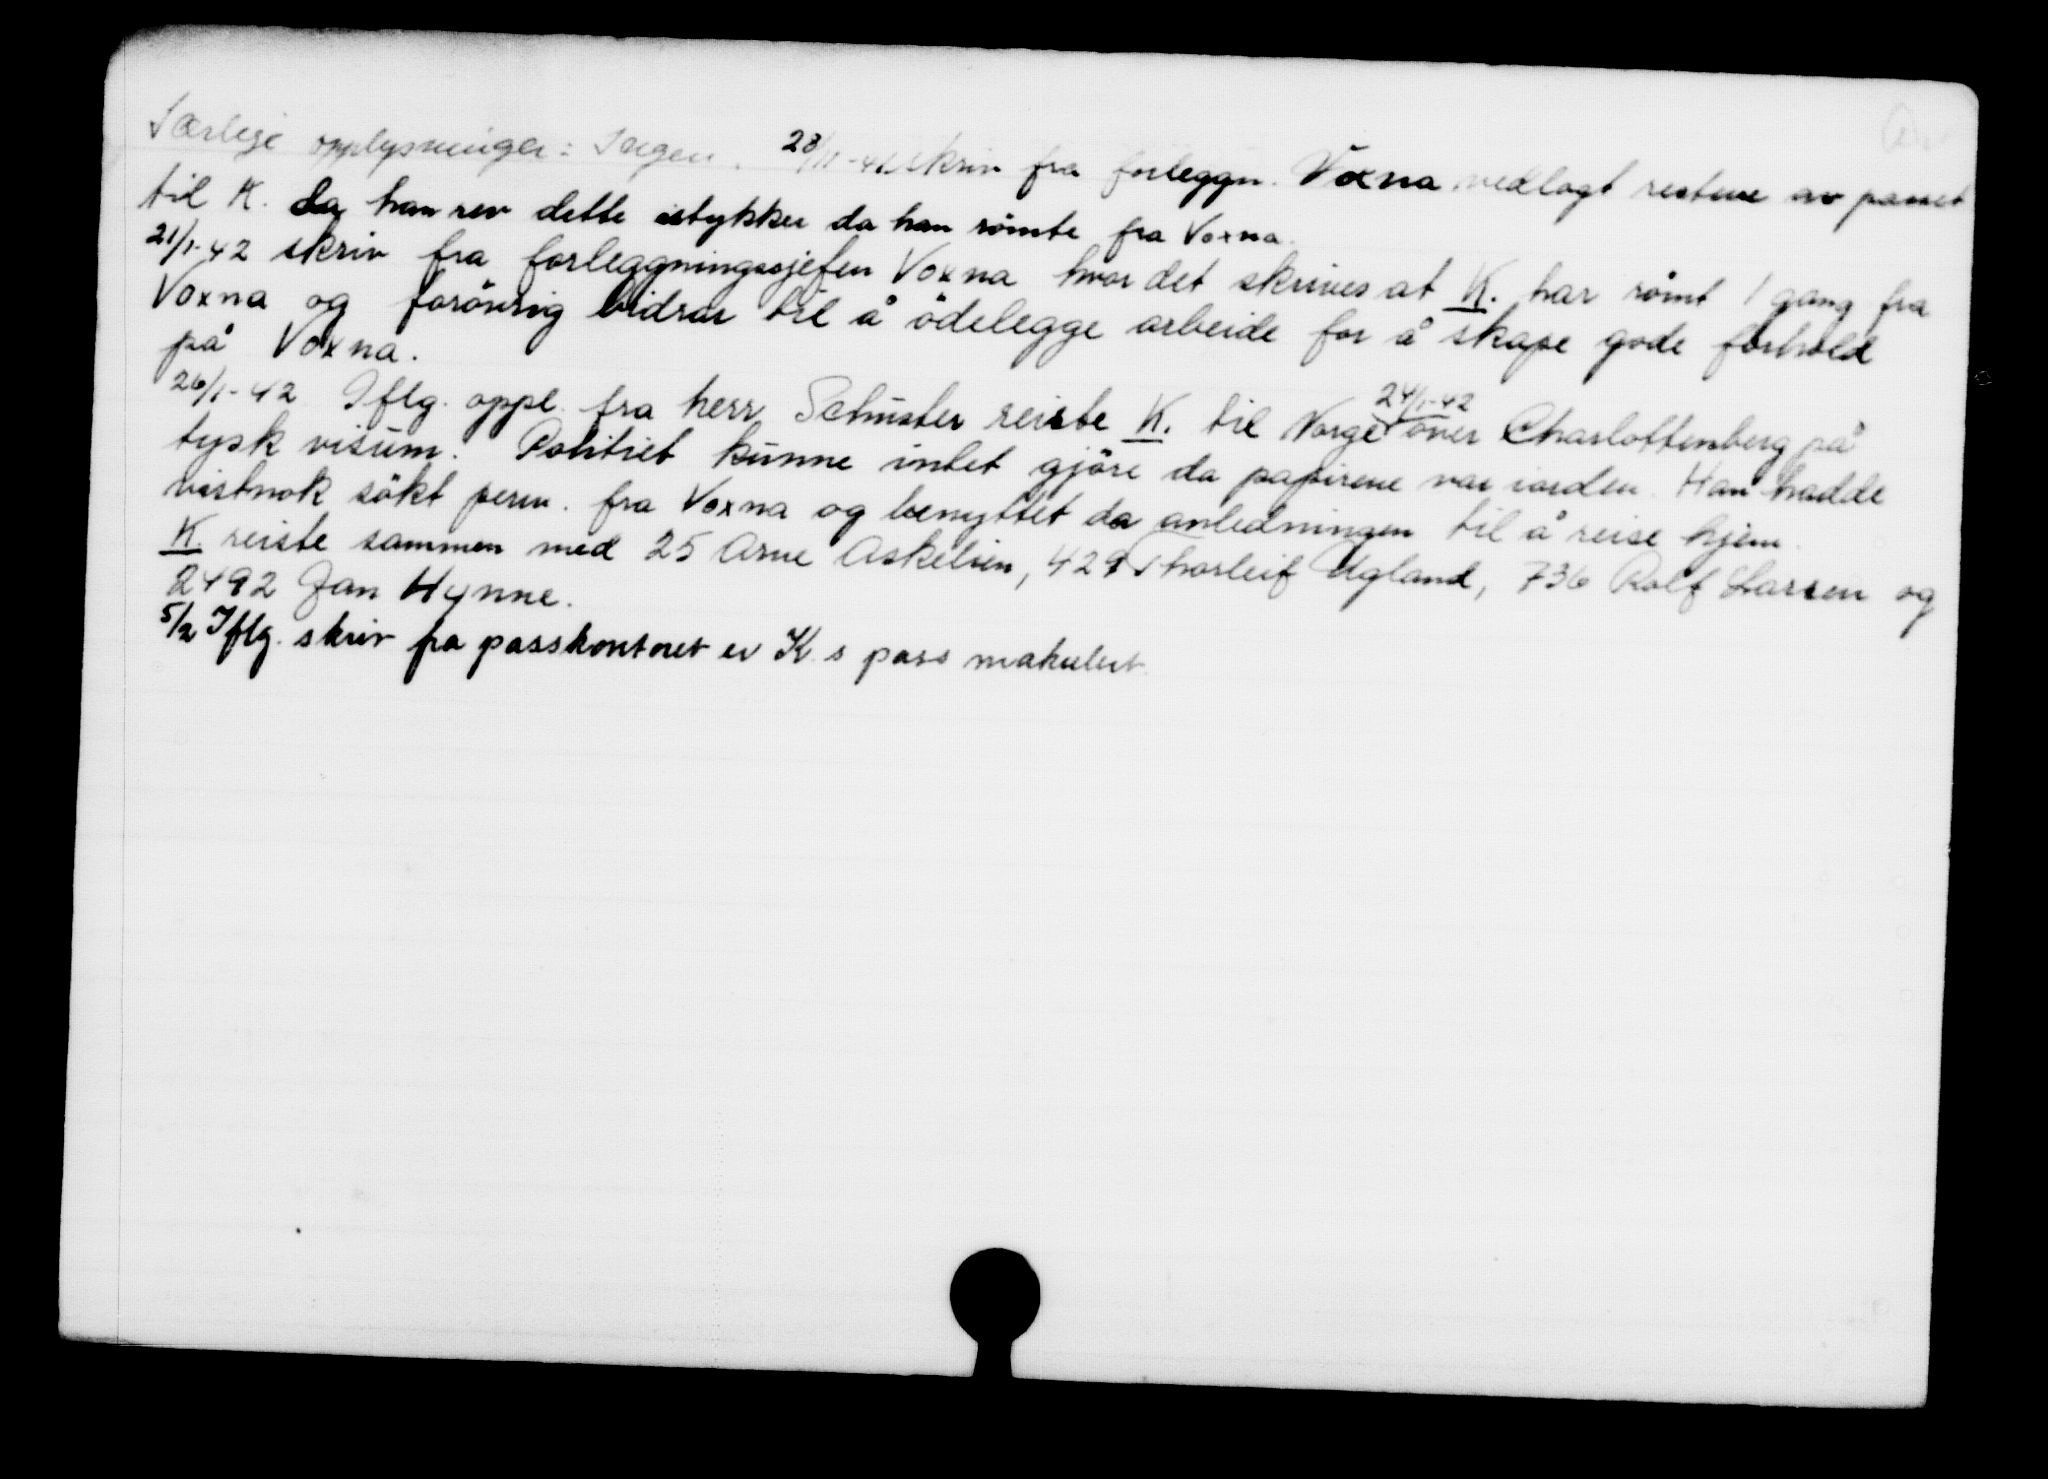 Særlige opplysninger: Ingen. 28/11-41. skriv fra forleggn. Voxna vedlagt restene av passet
til K. da han rev dette istykker da han römte fra Voxna.
21/1-42 skriv fra forleggningssjefen Voxna hvor det skrives at K. har römt 1 gang fra
Voxna og forövrig bidrar til å ödelegge arbeide for å skape gode forhold
på Voxna.
26/1-42 Iflg. oppl. fra herr Schuster reiste K. til Norge 24/1-42 over Charlottenberg på
tysk visum. Politiet kunne intet gjöre da papirene var iorden. Han hadde
vistnok sökt perm. fra Voxna og benyttet da anledningen til å reise hjem.
K. reiste sammen med 25 Arne Askelsen, 429 Thorleif Ugland, 736 Rolf Larsen og
2492 Jan Hynne.
5/2 Iflg. skriv fra passkontoret er K.s pass makulert.